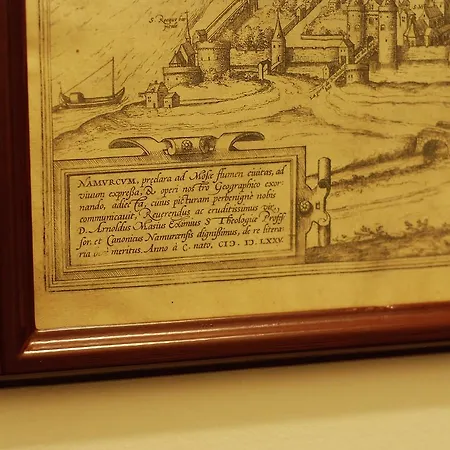 S. Roeque bar
NAMVRCVM, pręclara ad Mosę flumen ciuitas, ad
viuum expreßa, & operi nostro Geographico exor-
nando, adiecta, cuius picturam perbenignè nobis
communicauit, Reuerendus ac eruditissimus vir,
D. Arnoldus Masius Eximius S Theologiæ Profes
sor, et Canonicus Namurcensis dignißimus, de re litera-
ria meritus. Anno á C. nato, CIƆ. IƆ. LXXV.